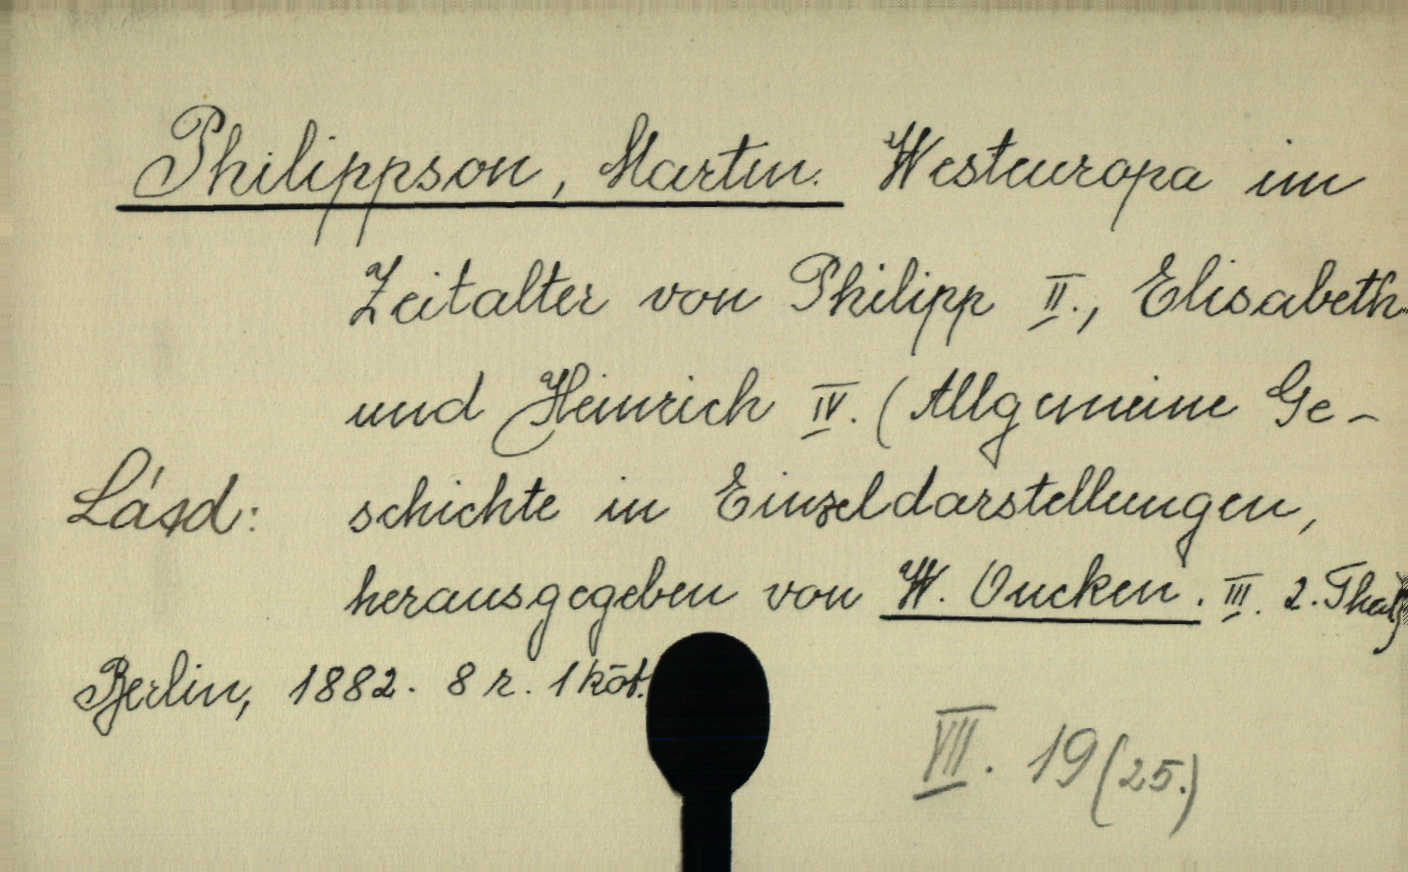 Philippson, Martin. Westeuropa im
Zeitalter von Philipp II., Elisabeth
und Heinrich IV. (Allgemeine Ge-
Lásd: schichte in Einzeldarstellungen,
herausgegeben von W. Oncken. III. 2. Theil)
Berlin, 1882. 8 r. 1 köt.
VII. 19 (25.)